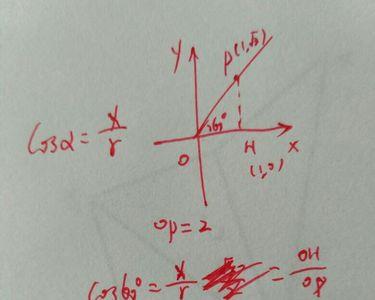 y
P(1,√3)
cosα = x/r
60°
O
H
x
(1,0)
OP=2
cos60° = x/r = OH/OP